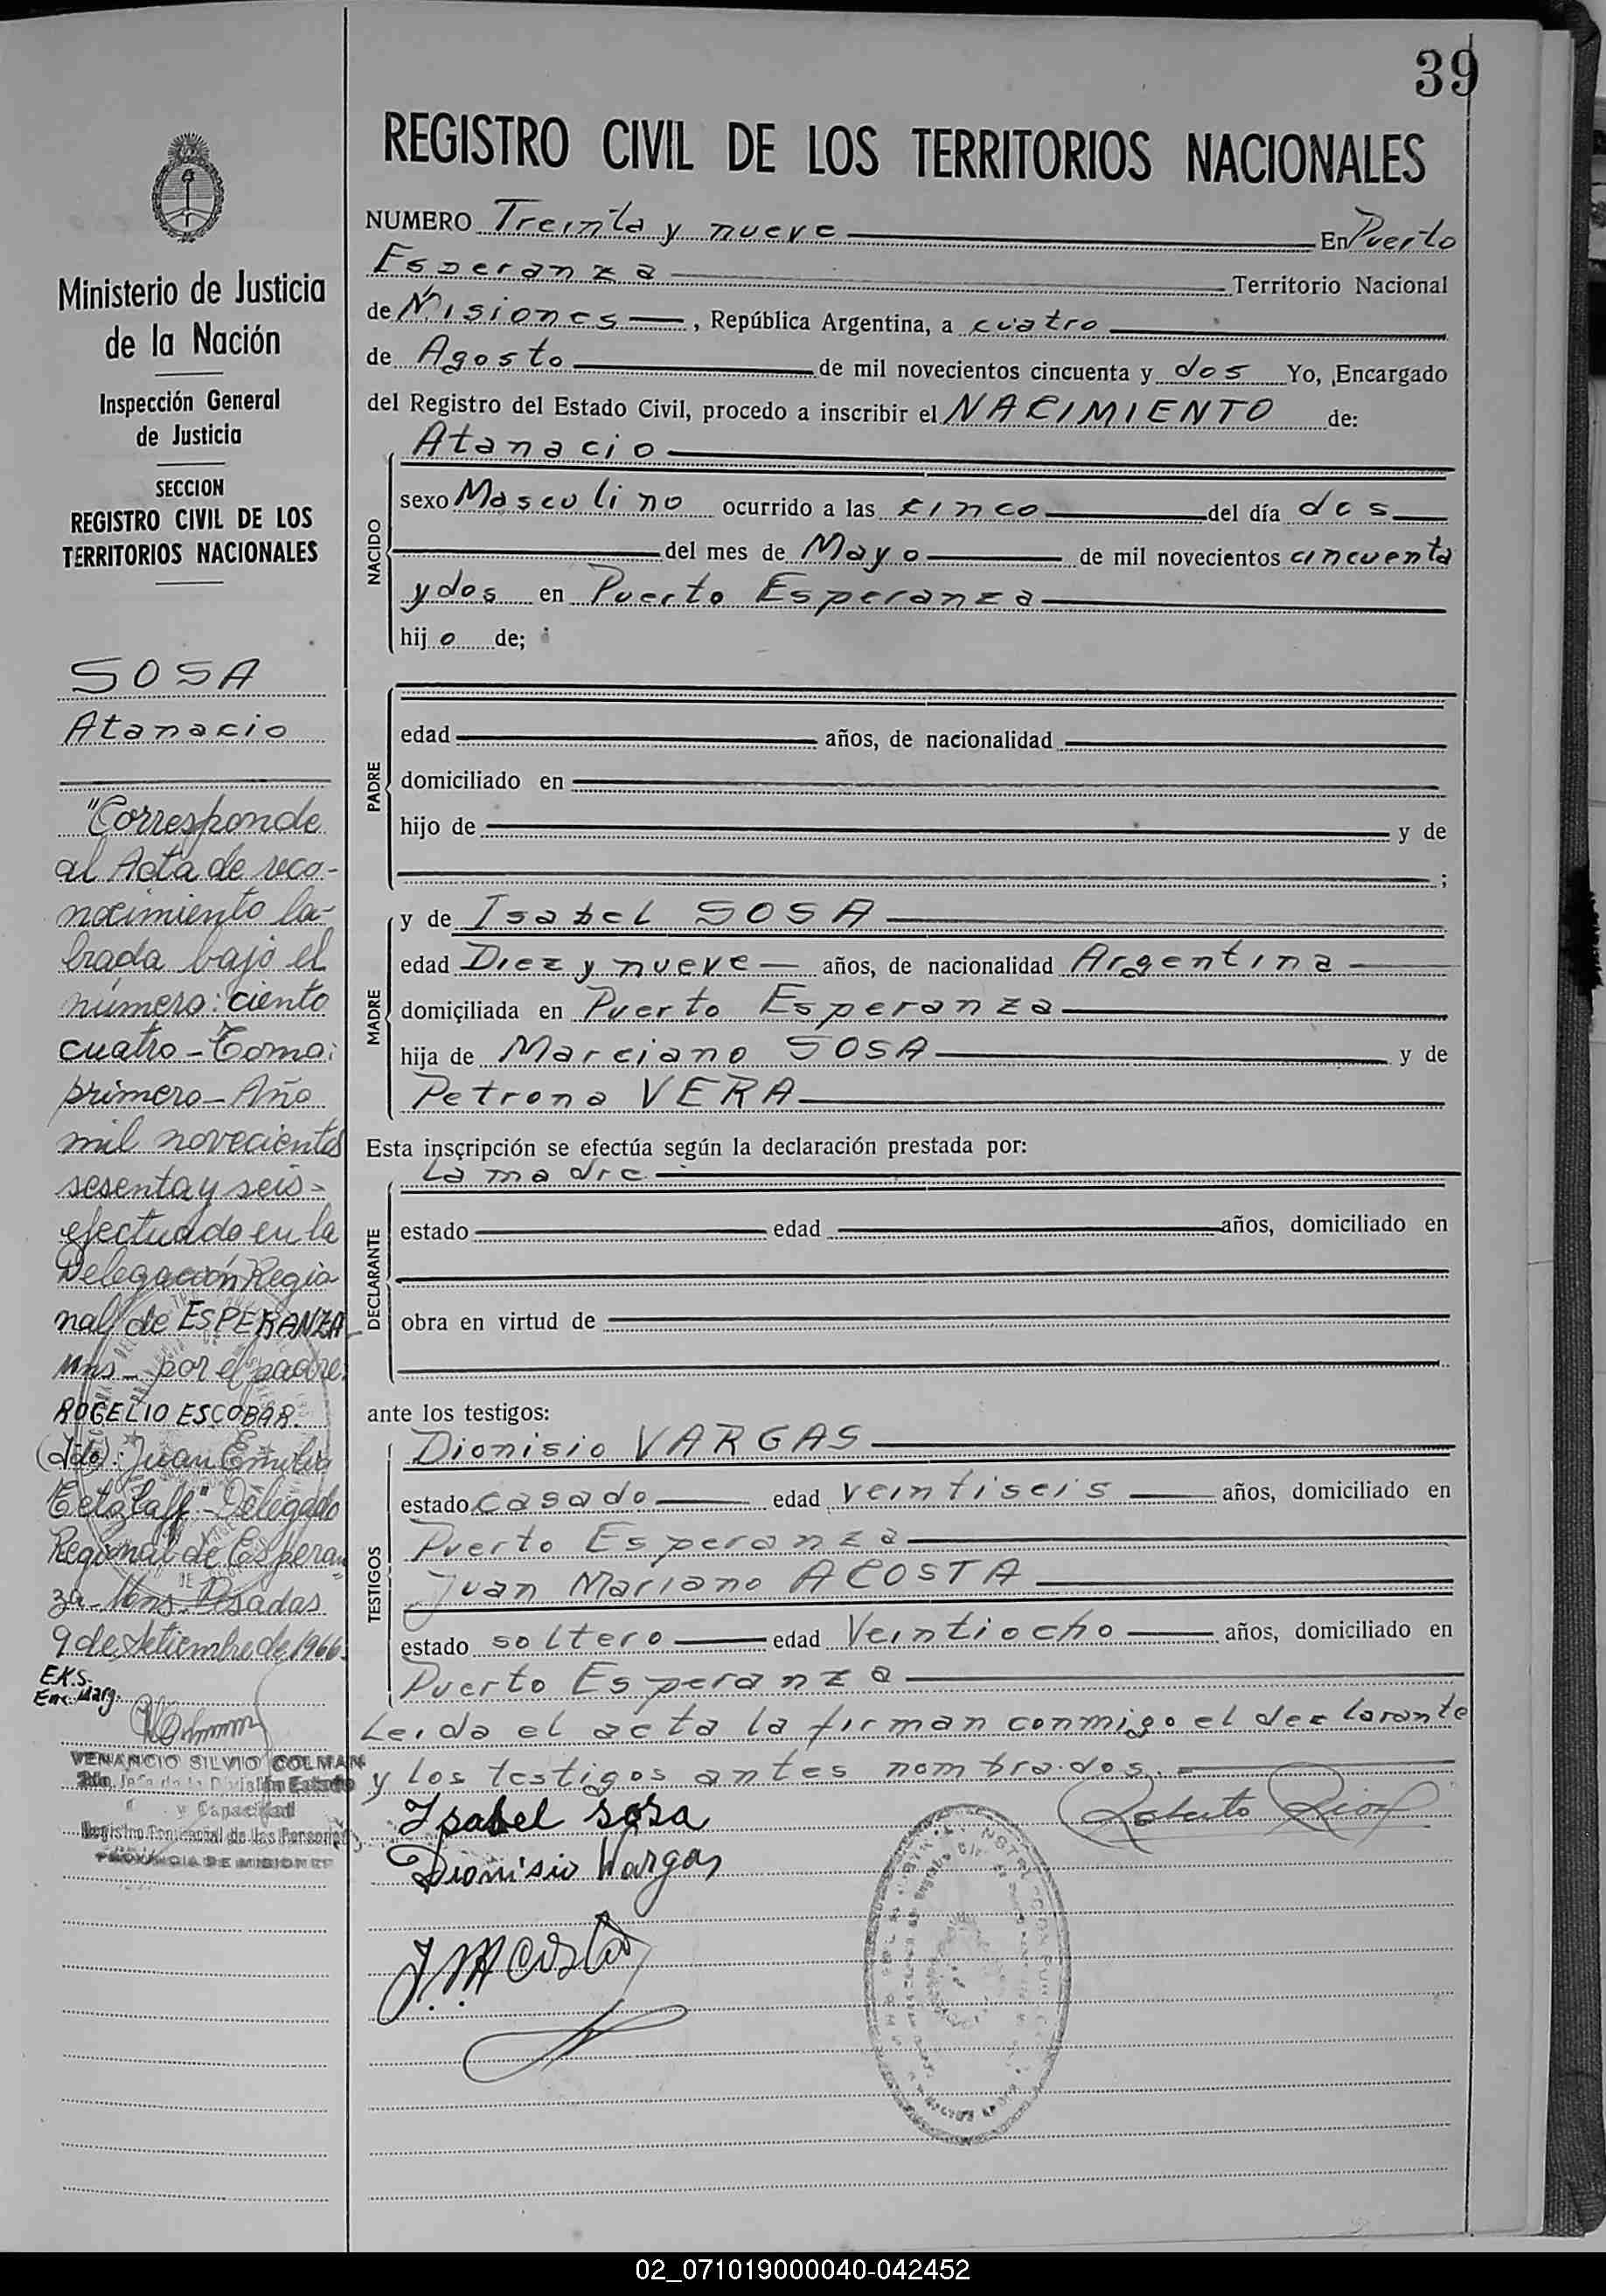 39
REGISTRO CIVIL DE LOS TERRITORIOS NACIONALES
NUMERO Treinta y nueve En Puerto
Esperanza Territorio Nacional
de Misiones, República Argentina, a cuatro
de Agosto de mil novecientos cincuenta y dos Yo, Encargado
del Registro del Estado Civil, procedo a inscribir el NACIMIENTO de:
NACIDO
Atanacio
sexo Masculino ocurrido a las cinco del día dos
del mes de Mayo de mil novecientos cincuenta
y dos en Puerto Esperanza
hijo de;
PADRE
edad años, de nacionalidad
domiciliado en
hijo de y de
;
MADRE
y de Isabel SOSA
edad Diez y nueve años, de nacionalidad Argentina
domiciliada en Puerto Esperanza
hija de Marciano SOSA y de
Petrona VERA
Esta inscripción se efectúa según la declaración prestada por:
DECLARANTE
La madre
estado edad años, domiciliado en
obra en virtud de
ante los testigos:
TESTIGOS
Dionisio VARGAS
estado casado edad veintiseis años, domiciliado en
Puerto Esperanza
Juan Mariano ACOSTA
estado soltero edad Veintiocho años, domiciliado en
Puerto Esperanza
Leida el acta la firman conmigo el declarante
y los testigos antes nombrados.
Isabel sosa
Dionisio Vargas
J.M Acosta
Ministerio de Justicia
de la Nación
Inspección General
de Justicia
SECCION
REGISTRO CIVIL DE LOS
TERRITORIOS NACIONALES
SOSA
Atanacio
"Corresponde
al Acta de reco-
nocimiento la-
brada bajo el
número: ciento
cuatro - Tomo:
primero - Año
mil novecientos
sesenta y seis -
efectuado en la
Delegación Regio
nal de ESPERANZA -
Mns - por el padre:
ROGELIO ESCOBAR.
(Fdo): Juan Emilio
Delegado
Regional de Esperan
za - Mns. Posadas
9 de Setiembre de 1966.
E.K.S.
Enc. Marg.
VENANCIO SILVIO COLMAN
2do. Jefe de la División Estado
y Capacidad
Registro Provincial de las Personas
PROVINCIA DE MISIONES
02_071019000040-042452